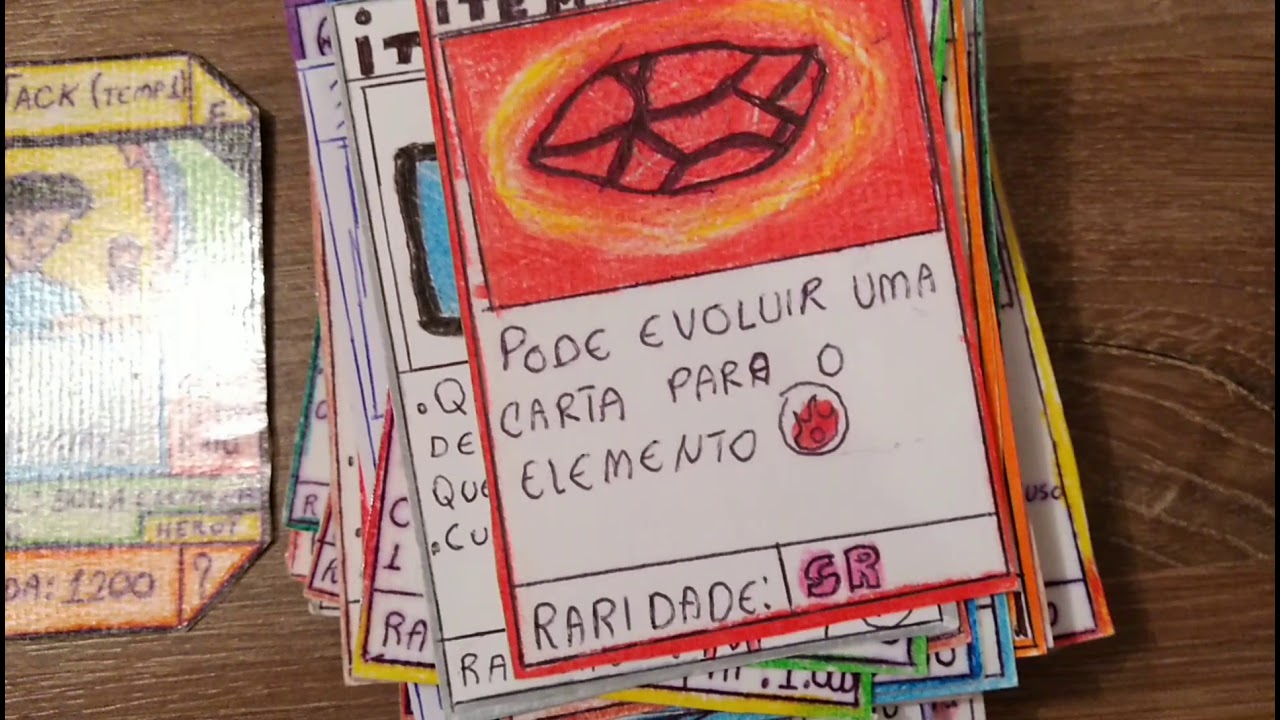 TACK (TEMP1)
E
HEROI
DA: 1200
?
ITEM
PODE EVOLUIR UMA
CARTA PARA O
ELEMENTO
RARIDADE: SR
IT
.Q
DE
QUE
.CU
RA
C
1
RA
R
USO